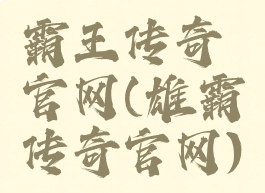 霸王传奇
官网(雄霸
传奇官网)